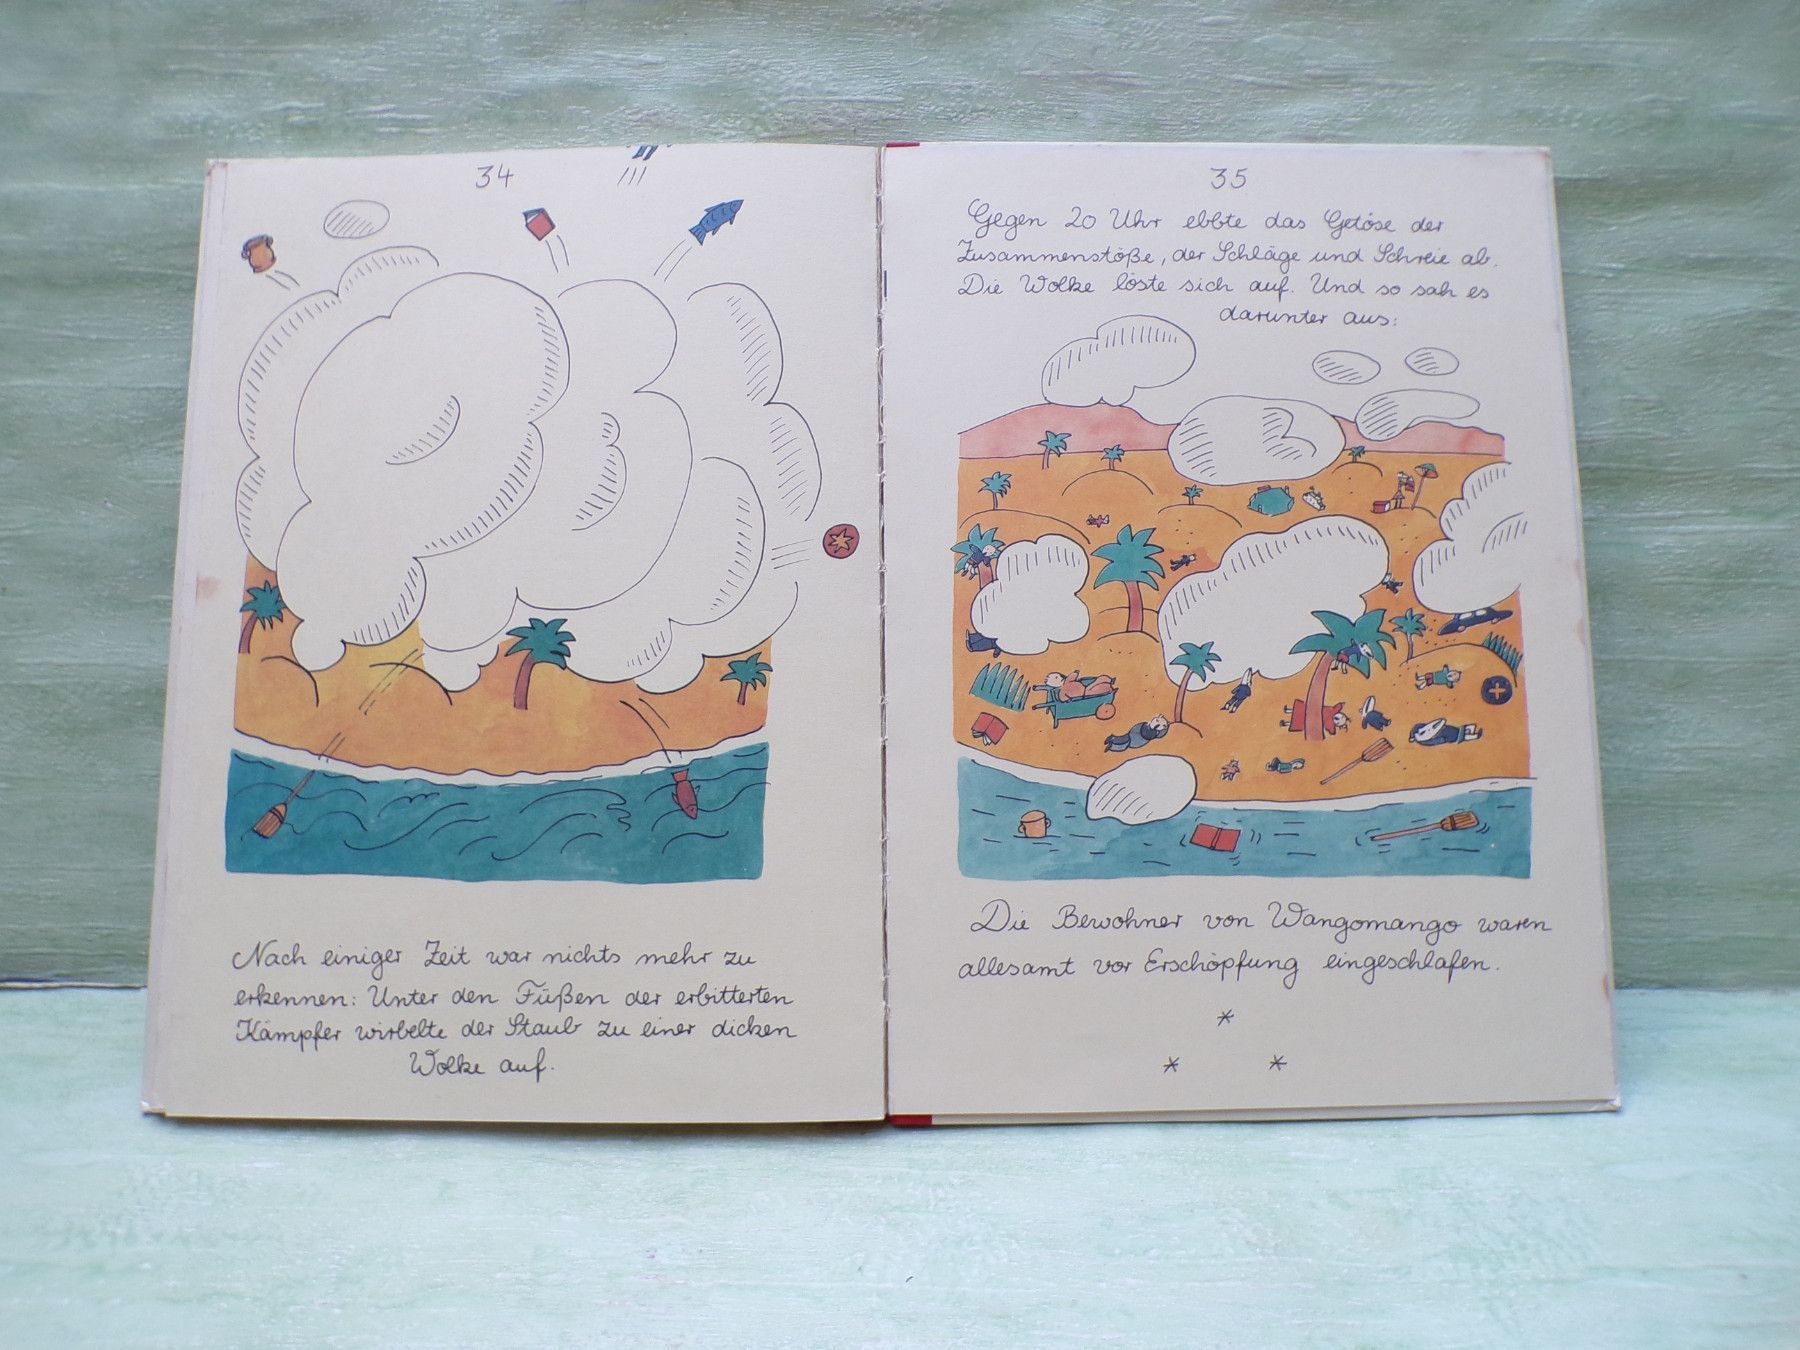 34
Nach einiger Zeit war nichts mehr zu
erkennen: Unter den Füßen der erbitterten
Kämpfer wirbelte der Staub zu einer dicken
Wolke auf.
35
Gegen 20 Uhr ebbte das Getöse der
Zusammenstöße, der Schläge und Schreie ab.
Die Wolke löste sich auf. Und so sah es
darunter aus:
Die Bewohner von Wangomango waren
allesamt vor Erschöpfung eingeschlafen.
*
* *